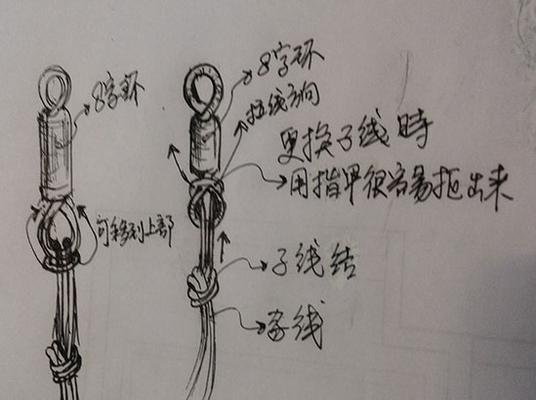 8字环
可移到上部
8字环
拉线方向
更换子线時
用指甲很容易抠出来
子线结
子线